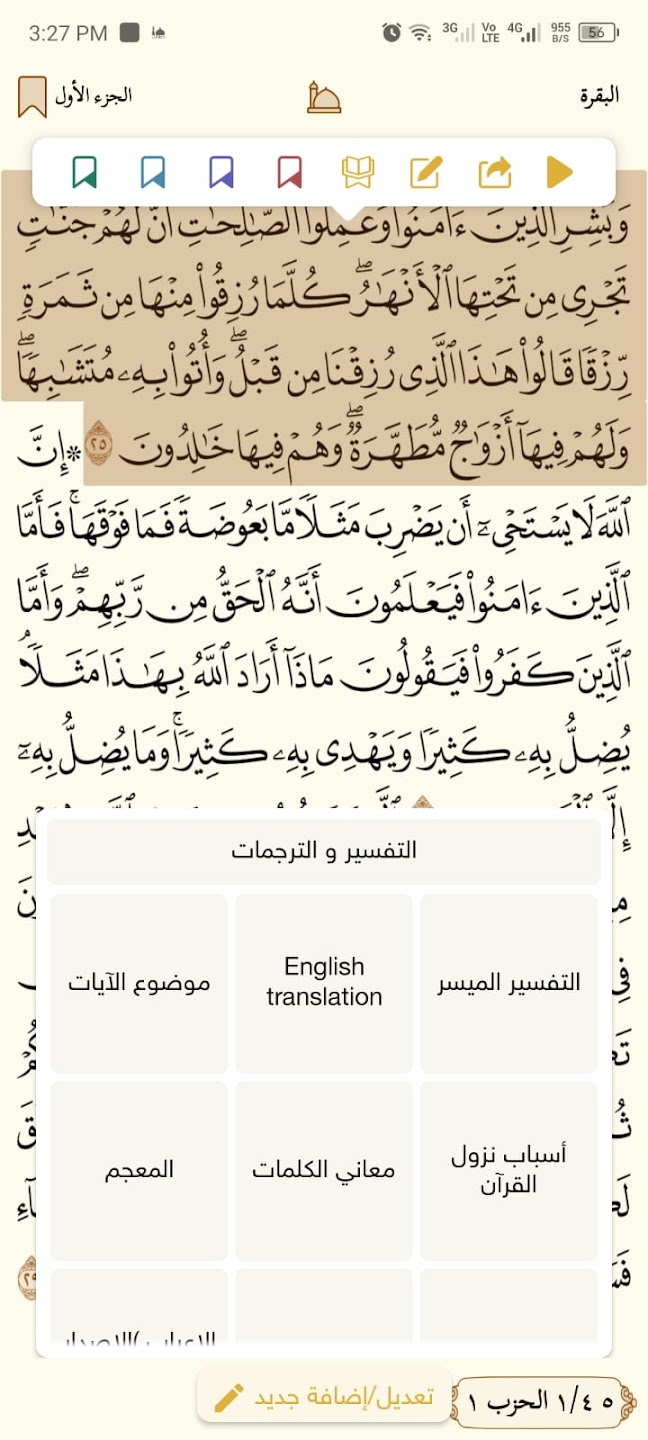 3:27 PM 3G Vo LTE 4G 955 B/S 56
البقرة الجزء الأول
وَبَشِّرِ ٱلَّذِينَ ءَامَنُوا۟ وَعَمِلُوا۟ ٱلصَّـٰلِحَـٰتِ أَنَّ لَهُمْ جَنَّـٰتٍ
تَجْرِى مِن تَحْتِهَا ٱلْأَنْهَـٰرُ ۖ كُلَّمَا رُزِقُوا۟ مِنْهَا مِن ثَمَرَةٍ
رِّزْقًا قَالُوا۟ هَـٰذَا ٱلَّذِى رُزِقْنَا مِن قَبْلُ ۖ وَأُتُوا۟ بِهِۦ مُتَشَـٰبِهًا ۖ
وَلَهُمْ فِيهَآ أَزْوَٰجٌ مُّطَهَّرَةٌ ۖ وَهُمْ فِيهَا خَـٰلِدُونَ ٢٥ * إِنَّ
ٱللَّهَ لَا يَسْتَحْىِۦٓ أَن يَضْرِبَ مَثَلًا مَّا بَعُوضَةً فَمَا فَوْقَهَا ۚ فَأَمَّا
ٱلَّذِينَ ءَامَنُوا۟ فَيَعْلَمُونَ أَنَّهُ ٱلْحَقُّ مِن رَّبِّهِمْ ۖ وَأَمَّا
ٱلَّذِينَ كَفَرُوا۟ فَيَقُولُونَ مَاذَآ أَرَادَ ٱللَّهُ بِهَـٰذَا مَثَلًا ۘ
يُضِلُّ بِهِۦ كَثِيرًا وَيَهْدِى بِهِۦ كَثِيرًا ۚ وَمَا يُضِلُّ بِهِۦٓ
التفسير و الترجمات
التفسير الميسر
English translation
موضوع الآيات
أسباب نزول القرآن
معاني الكلمات
المعجم
تعديل/إضافة جديد
٥ ١/٤ الحزب ١